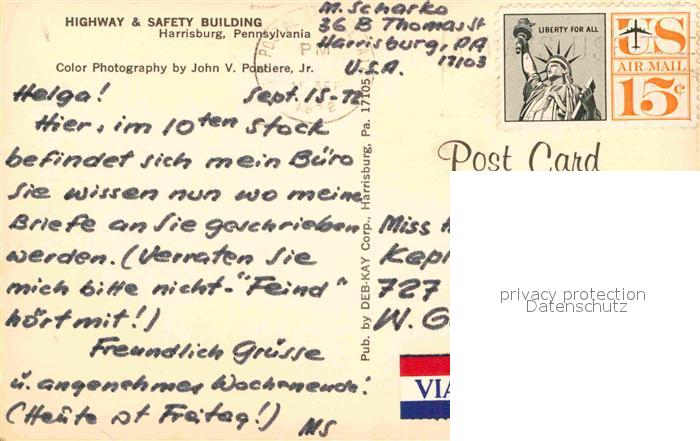 HIGHWAY & SAFETY BUILDING
Harrisburg, Pennsylvania
Color Photography by John V. Pontiere, Jr.
M. Scharko
36 B Thomas St
Harrisburg, PA
17103
U.S.A.
PM
1972
LIBERTY FOR ALL
US
AIR MAIL
15¢
Helga! Sept. 15-72
Hier, im 10ten Stock
befindet sich mein Büro
Sie wissen nun wo meine
Briefe an Sie geschrieben
werden. (Verraten Sie
mich bitte nicht-"Feind"
hört mit!)
Freundlich Grüsse
u. angenehmes Wochenende!
(Heute st Freitag!) MS
Pub. by DEB-KAY Corp., Harrisburg, Pa. 17105
Post Card
Miss
Kep
727
W. G
VIA
privacy protection
Datenschutz